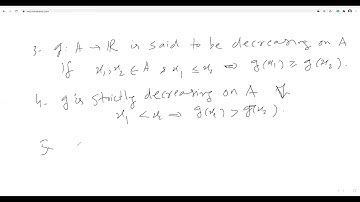 3. g: A → ℝ is said to be decreasing on A
if x₁, x₂ ∈ A & x₁ ≤ x₂ ⇒ g(x₁) ≥ g(x₂).
4. g is strictly decreasing on A if
x₁ < x₂ ⇒ g(x₁) > g(x₂).
5.